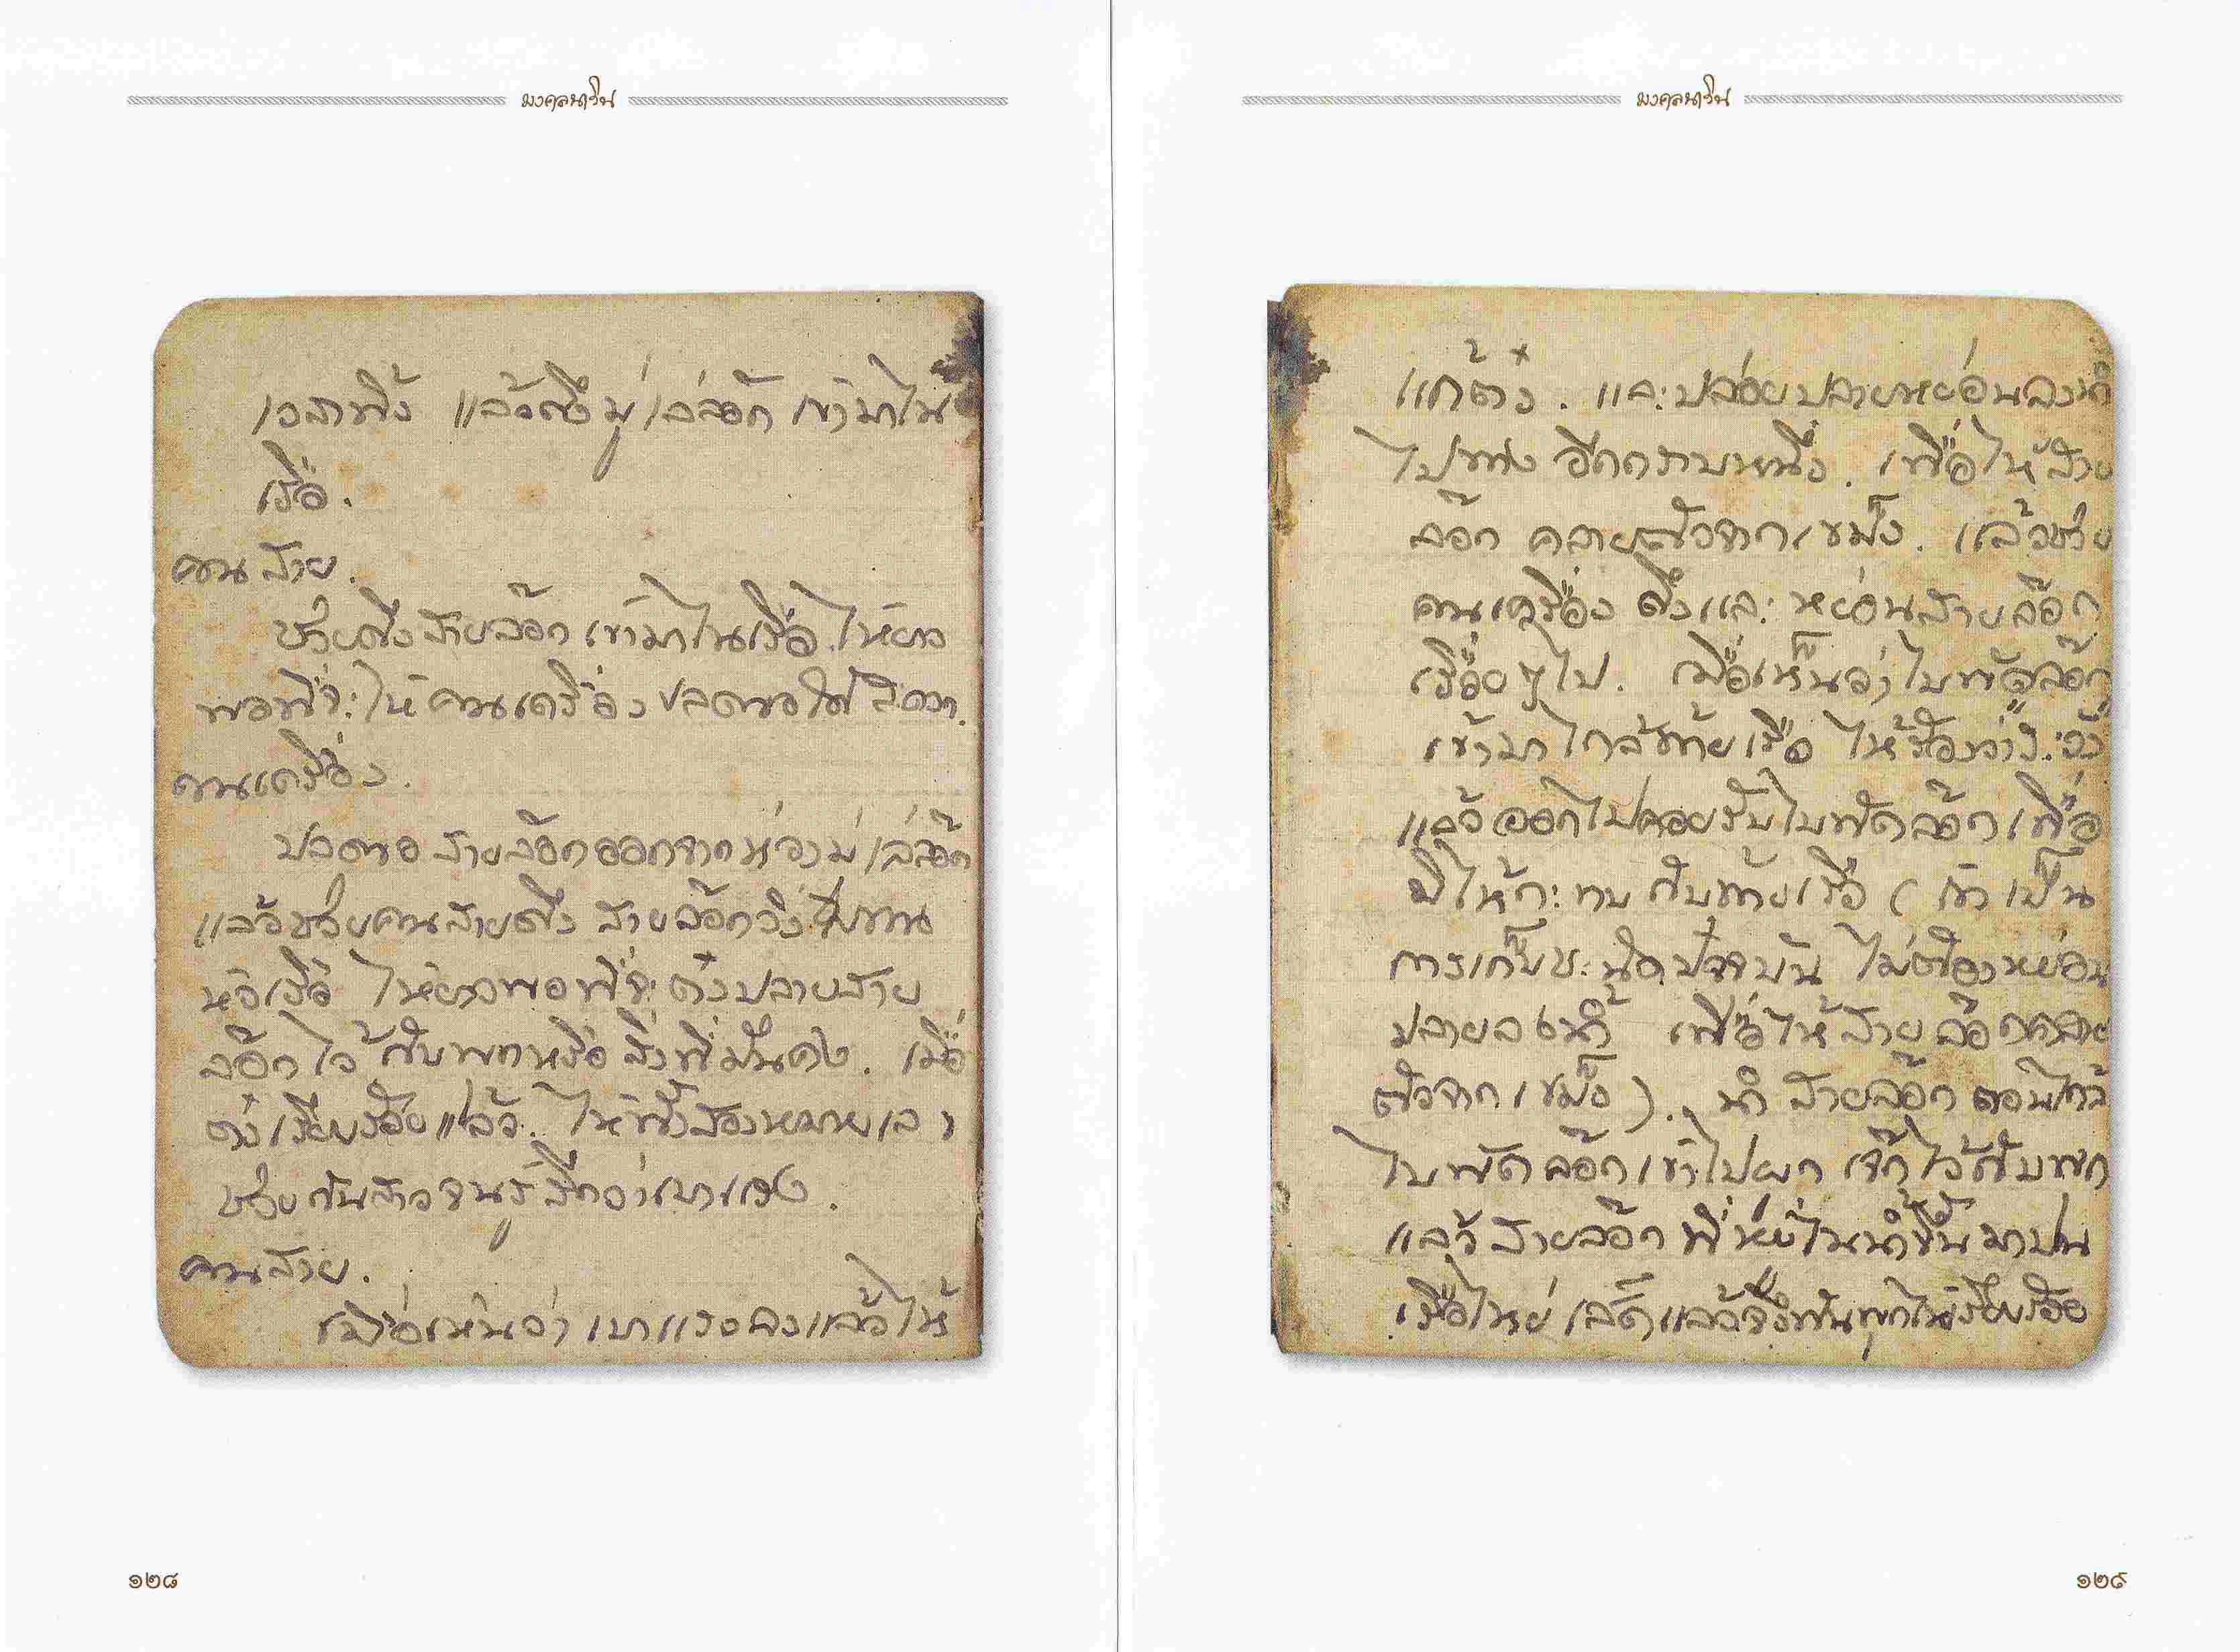 มงคลนาวิน
เวลาทิ้ง แล้วดึงมู่เล่ล๊อก เข้ามาใน
เรือ.
คนสาย.
ช่วยดึงสายล๊อก เข้ามาในเรือ ให้ยาว
พอที่จะให้ คนเครื่อง ปลดขอได้สดวก.
คนเครื่อง.
ปลดขอ สายล๊อกออกจากห่วงมู่เล่ล๊อก
แล้วช่วยคนสายดึง สายล๊อกวิ่งไปทาง
หัวเรือ ให้ยาวพอที่จะตั้งปลายสาย
ล๊อกไว้กับพุกหรือ สิ่งที่มั่นคง. เมื่อ
ตั้งเรียบร้อยแล้ว. ให้ทั้งสองหมายเลข
ช่วยกันสาวจนรู้สึกว่าเบาแรง.
คนสาย.
เมื่อเห็นว่าเบาแรงลงแล้วให้
๑๒๘
มงคลนาวิน
แก้ตั้ง. และปล่อยปลายหย่อนลงน้ำ
ไปทาง อีกกราบหนึ่ง. เพื่อให้สาย
ล๊อก คลายตัวจากเขม็ง. แล้วช่วย
คนเครื่อง ดึงและ หย่อนสายล๊อก
เรื่อยๆไป. เมื่อเห็นว่าใบพัดล๊อก
เข้ามาใกล้ท้ายเรือ ให้ร้องว่า
แล้วออกไปคอยรับใบพัดล๊อก เพื่อ
มิให้กระทบกับท้ายเรือ ( ถ้าเป็น
การเก็บชะนิดปัจจุบัน ไม่ต้องหย่อน
ปลายลงน้ำ เพื่อให้สายล๊อกคลาย
ตัวจากเขม็ง ). นำสายล๊อก ตอนใกล้
ใบพัดล๊อกเข้าไปผูก ไว้กับพุก
แล้วสายล๊อก ที่หย่อนในน้ำขึ้นมาบน
เรือใหม่ เสร็จแล้วจึงพันพุกให้เรียบร้อย
๑๒๙